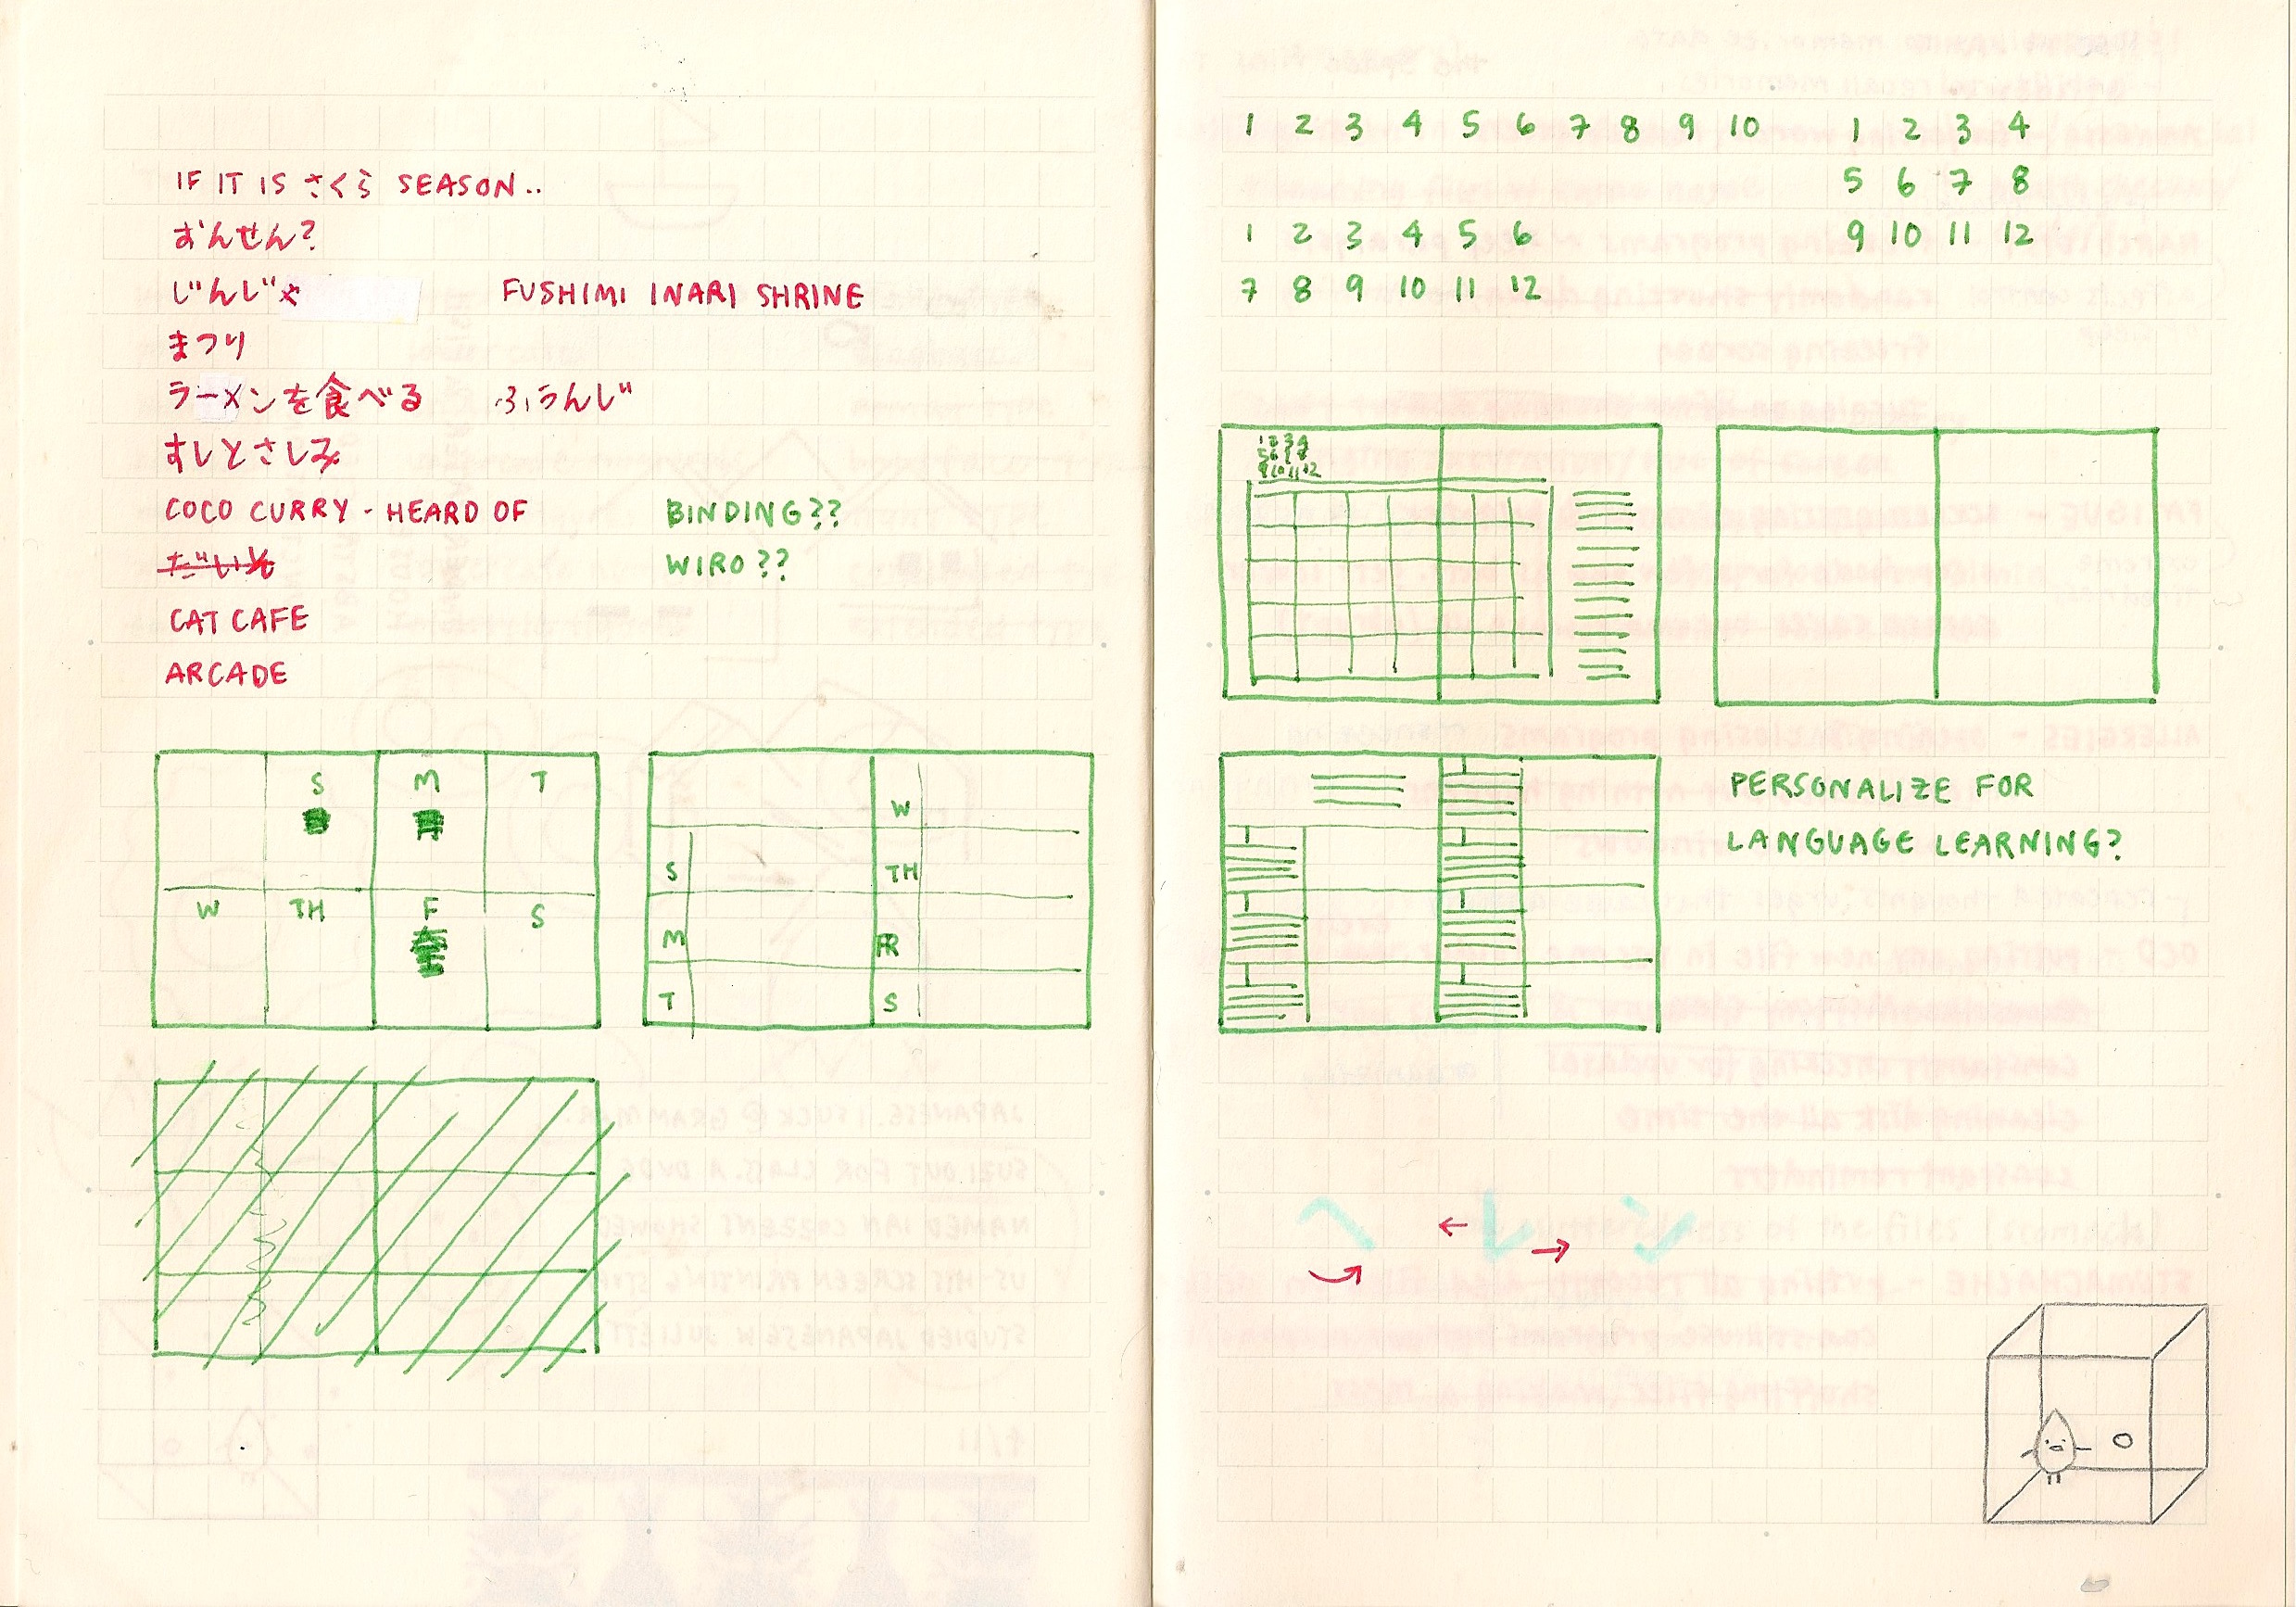 IF IT IS さくら SEASON..
おんせん?
じんじゃ FUSHIMI INARI SHRINE
まつり
ラーメンを食べる ふうんじ
すしとさしみ
COCO CURRY - HEARD OF
BINDING??
WIRO??
CAT CAFE
ARCADE
S M T
W TH F S
W
S TH
M
T S
1 2 3 4 5 6 7 8 9 10
1 2 3 4 5 6
7 8 9 10 11 12
1 2 3 4
5 6 7 8
9 10 11 12
1 2 3 4
5 6 7 8
9 10 11 12
PERSONALIZE FOR
LANGUAGE LEARNING?